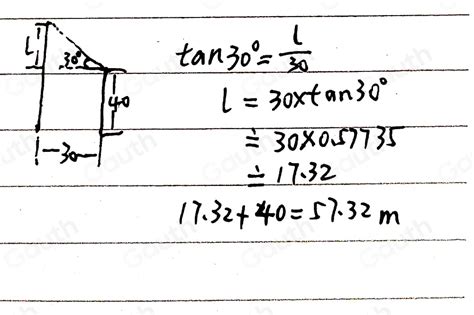 L
30°
40
30
tan30°=l/30
l = 30×tan30°
≐ 30×0.57735
≐ 17.32
17.32+40=57.32 m